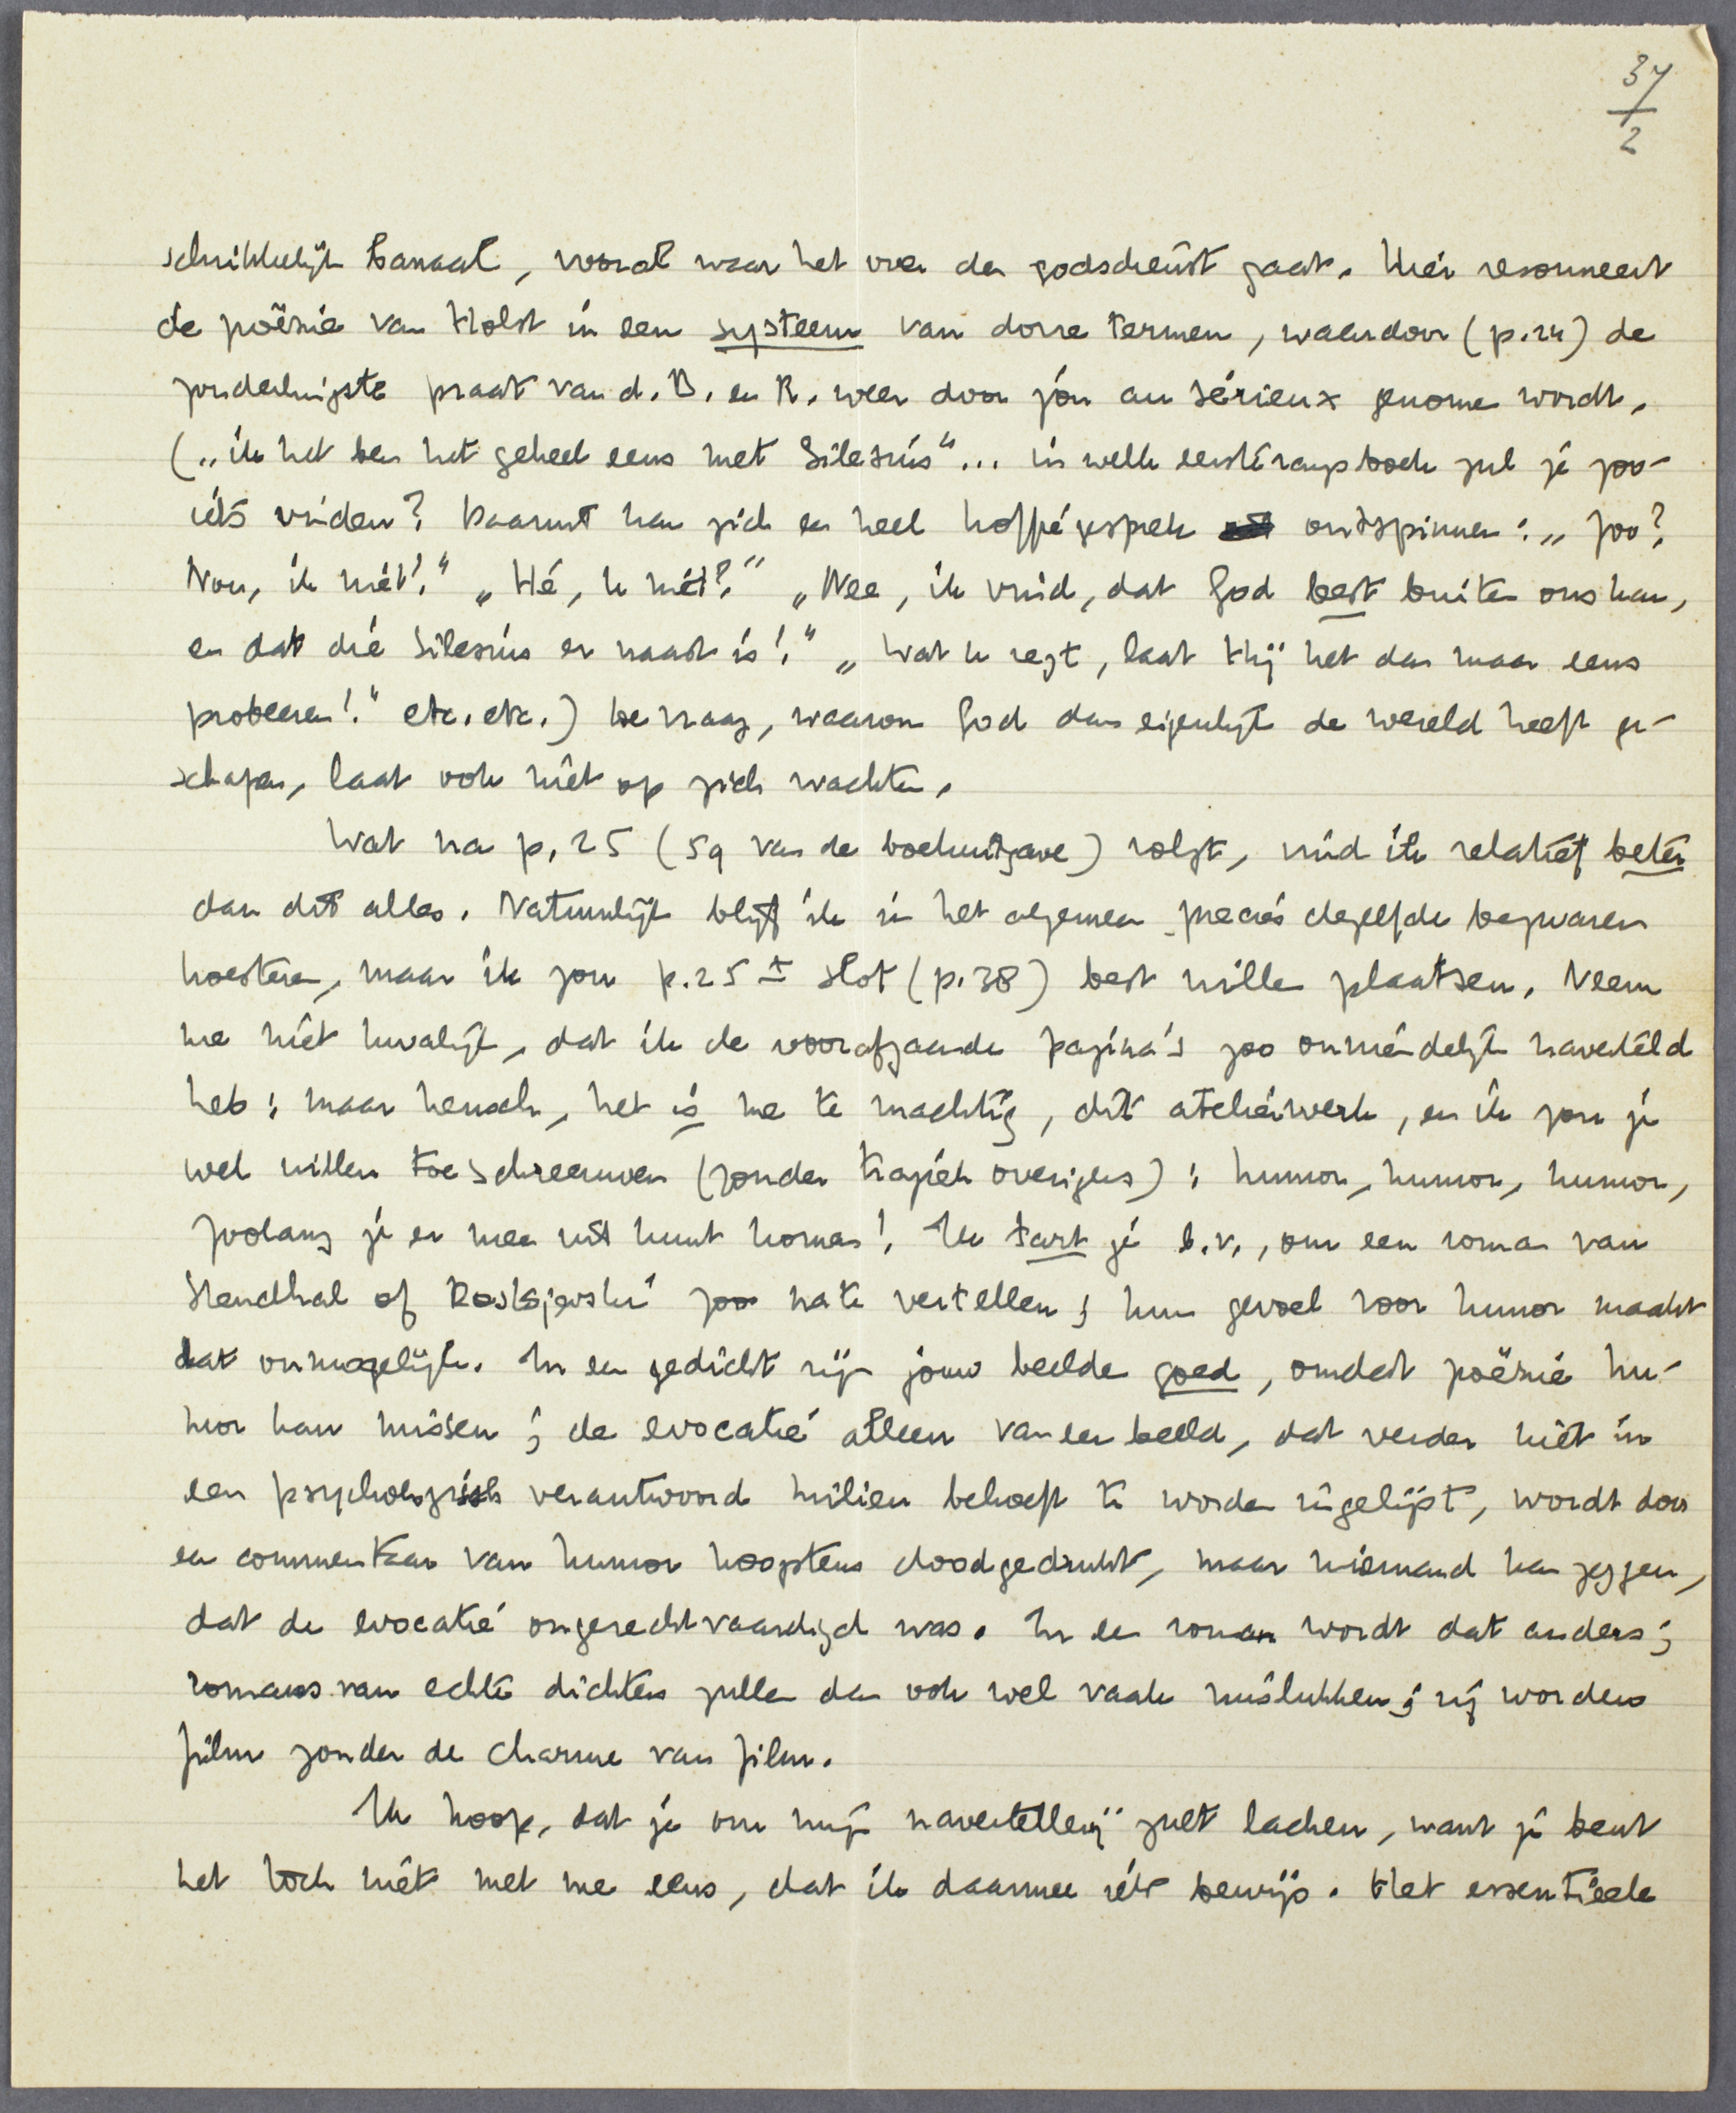 37
2
schrikkelijk banaal, vooral waar het over den godsdienst gaat. Hier resonneert
de poëzie van Holst in een systeem van dorre termen, waardoor (p. 24) de
zonderlingste praat van d. B. en R. weer door jóu au sérieux genomen wordt.
(„ik het ben het geheel eens met Silesius"... in welk eersterangsboek zul je zoo-
iets vinden? Daaruit kan zich een heel koffiegesprek ontspinnen: „Zoo?
Nou, ik niet!" „Hé, U niet?" „Nee, ik vind, dat God best buiten ons kan,
en dat die Silesius er naast is!" „Wat U zegt, laat Hij het dan maar eens
probeeren!" etc. etc.) De vraag, waarom God dan eigenlijk de wereld heeft ge-
schapen, laat ook niet op zich wachten.
Wat na p. 25 (59 van de boekuitgave) volgt, vind ik relatief beter
dan dit alles. Natuurlijk blijf ik in het algemeen precies dezelfde bezwaren
koesteren, maar ik zou p. 25 ± slot (p. 38) best willen plaatsen. Neem
me niet kwalijk, dat ik de voorafgaande pagina's zoo onvriendelijk naverteld
heb; maar heusch, het is me te machtig, dit atelierwerk, en ik zou je
wel willen toeschreeuwen (zonder tragiek overigens): humor, humor, humor,
zoolang je er mee uit kunt komen! Ik tart je b.v., om een roman van
Stendhal of Dostojevski zoo na te vertellen; hun gevoel voor humor maakt
dat onmogelijk. In een gedicht zijn jouw beelden goed, omdat poëzie hu-
mor kan missen; de evocatie alleen van een beeld, dat verder niet in
een psychologisch verantwoord milieu behoeft te worden ingelijst, wordt door
een commentaar van humor hoogstens doodgedrukt, maar niemand kan zeggen,
dat de evocatie ongerechtvaardigd was. In een roman wordt dat anders;
romans van echte dichters zullen dan ook wel vaak mislukken; zij worden
film zonder de charme van film.
Ik hoop, dat je om mijn navertellerij zult lachen, want je bent
het toch niet met me eens, dat ik daarmee iets bewijs. Het essentieele